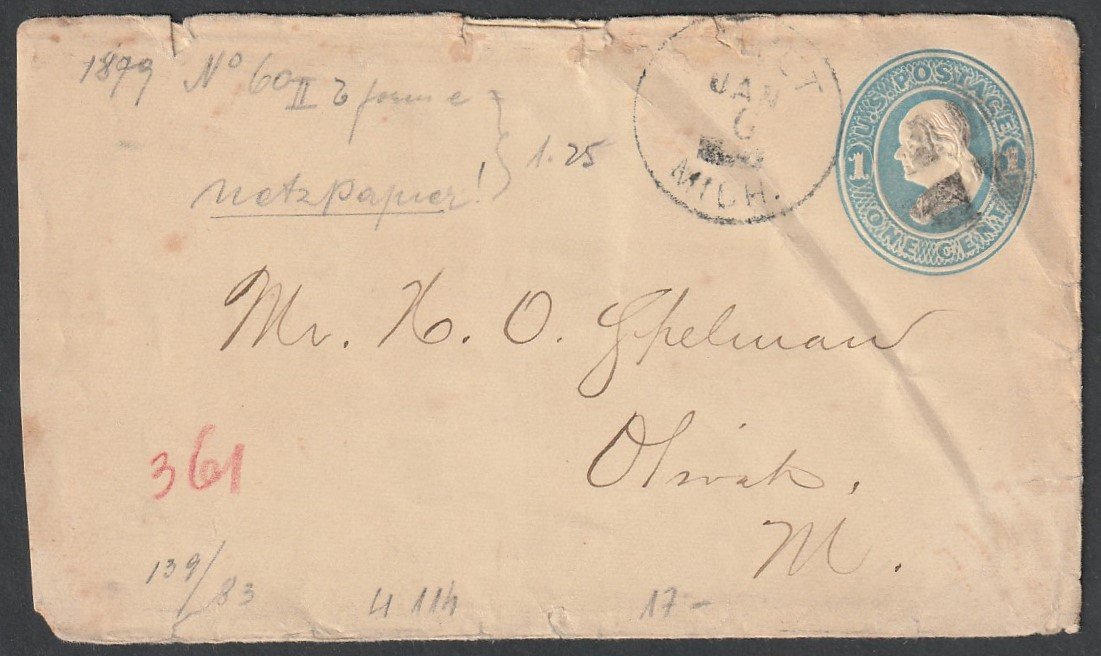 1879 No 60 II b forme
netzpapier!
1.25
JAN
6
MICH.
U.S. POSTAGE
1 1
ONE CENT
Mr. H. O. Spelman
M.
361
139/83 U 114 17-